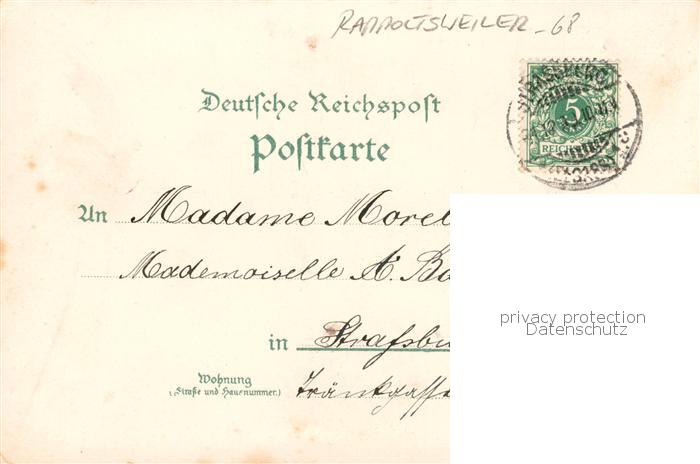 RAPPOLTSWEILER - 68
Deutsche Reichspost
Postkarte
5
REICHSPOST
An Madame Morel
Mademoiselle A. Ba
privacy protection
Datenschutz
in Strassbu
Wohnung
(Straße und Hausnummer.)
Tränkgass